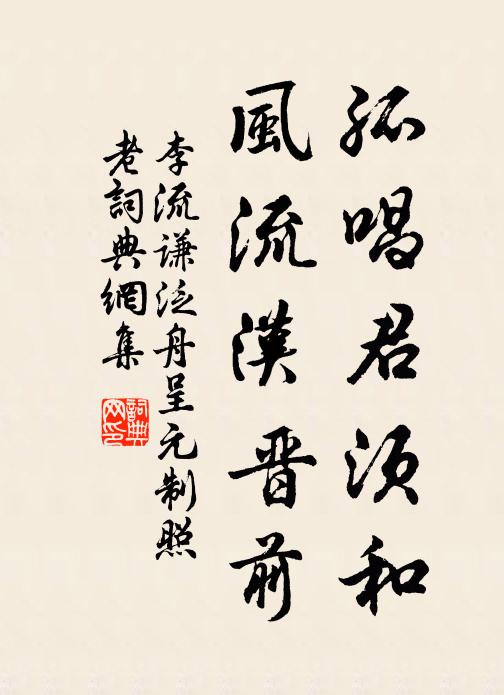 孤唱君須和
風流漢晉前
李流謙泛舟呈元制照
老詞典網集
詞典网印